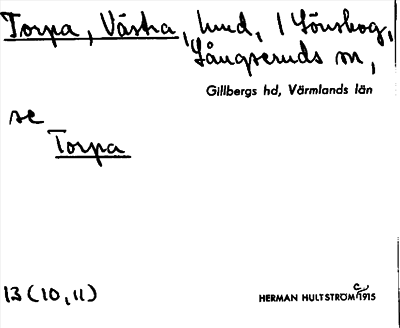 Torpa, Västra, hmd, / Lönskog,
Långseruds sn,
Gillbergs hd, Värmlands län
se
Torpa
13 (10, 11)
HERMAN HULTSTRÖM 1915